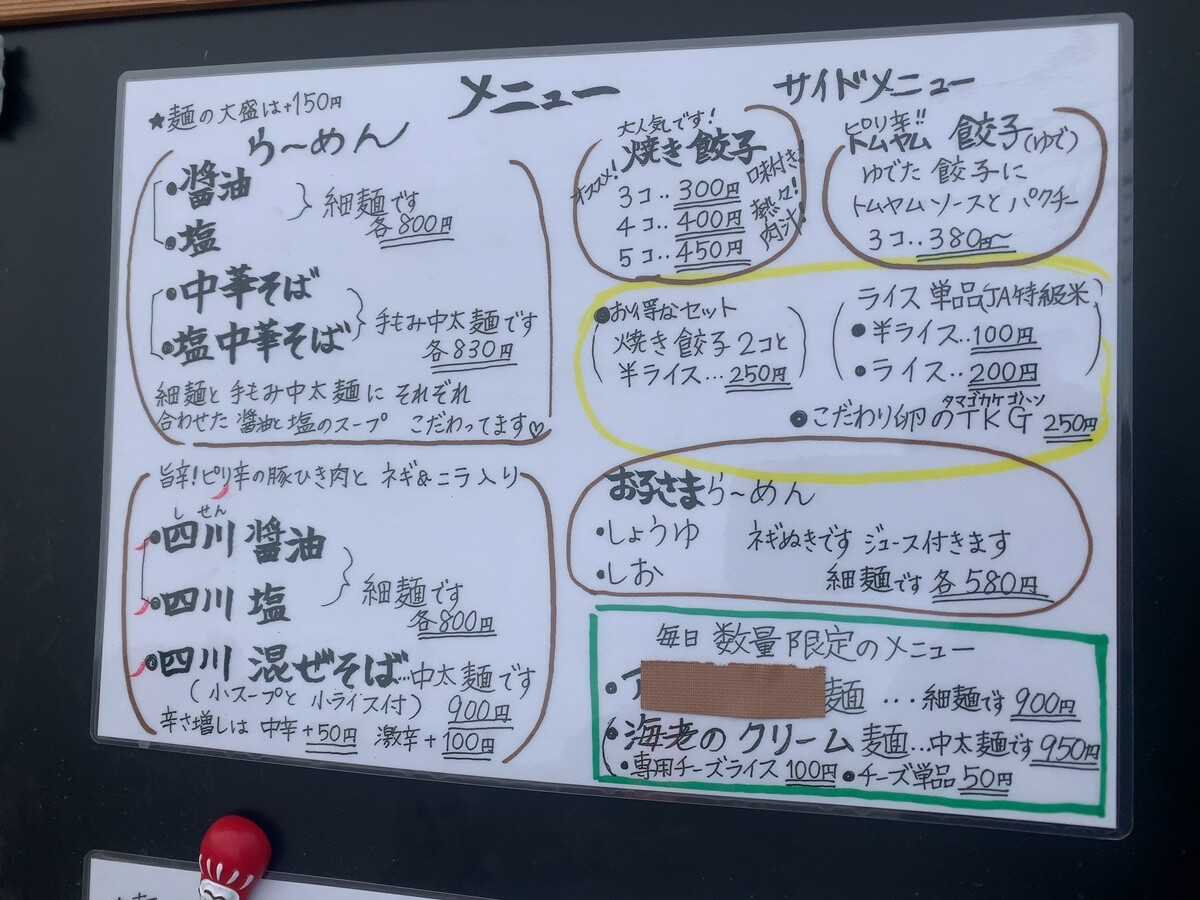 メニュー
★麺の大盛は+150円
ら〜めん
・醤油
・塩
細麺です
各800円
・中華そば
・塩中華そば
手もみ中太麺です
各830円
細麺と手もみ中太麺にそれぞれ
合わせた醤油と塩のスープ こだわってます♡
旨辛!ピリ辛の豚ひき肉と ネギ&ニラ入り
しせん
・四川 醤油
・四川 塩
細麺です
各800円
・四川 混ぜそば…中太麺です
(小スープと小ライス付) 900円
辛さ増しは 中辛+50円 激辛+100円
サイドメニュー
大人気です!
オススメ!
焼き餃子
3コ‥300円
4コ‥400円
5コ‥450円
味付き!
熱々!
肉汁!
ピリ辛!!
トムヤム 餃子(ゆで)
ゆでた 餃子に
トムヤムソースと パクチー
3コ‥380円〜
●お得なセット
焼き餃子2コと
半ライス…250円
ライス単品(JA特級米)
●半ライス‥100円
・ライス‥200円
タマゴカケゴハン
●こだわり卵のTKG 250円
お子さまら〜めん
・しょうゆ
・しお
ネギぬきです ジュース付きます
細麺です 各580円
毎日 数量限定のメニュー
・ア
麺 …細麺です 900円
・海老のクリーム麺…中太麺です950円
・専用チーズライス 100円 ●チーズ単品 50円